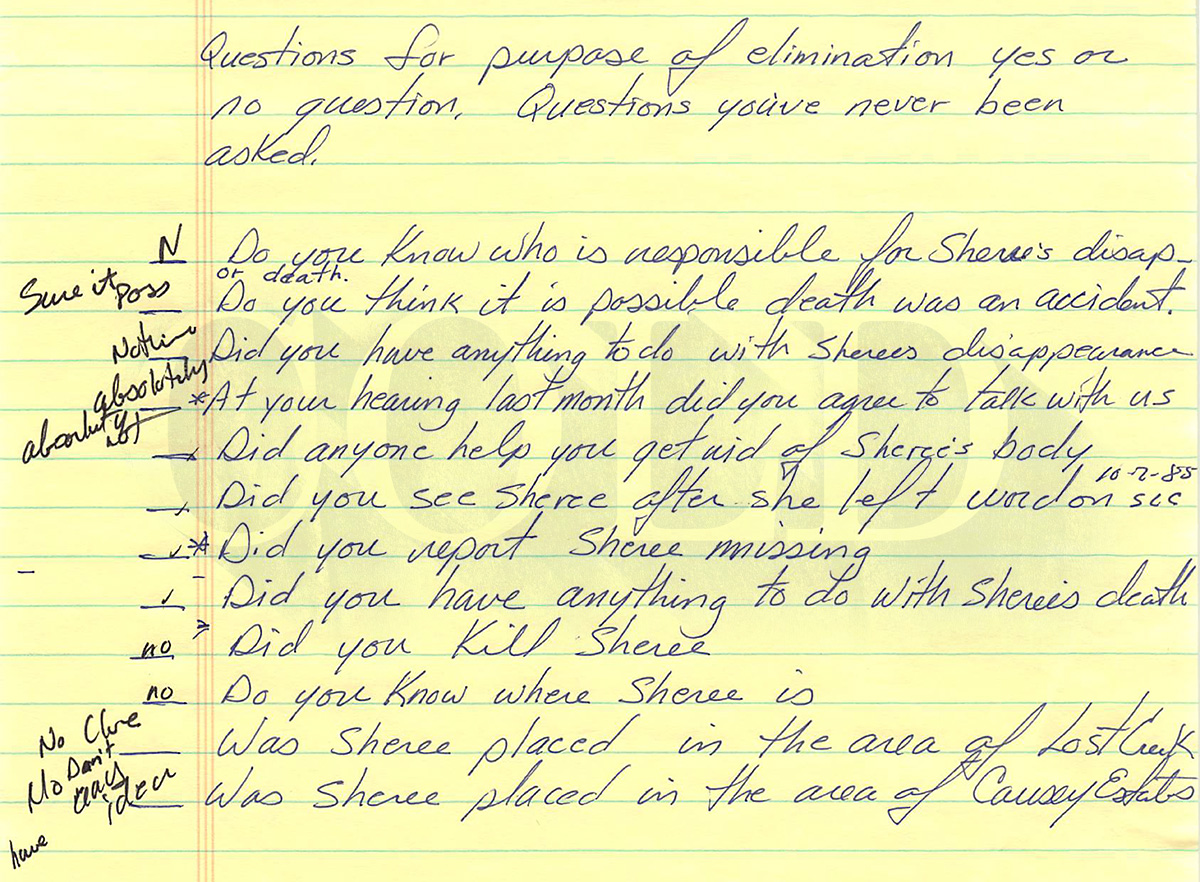 Questions for purpose of elimination yes or
no question. Questions you've never been
asked.
N Do you Know who is responsible for Sheree's disap-
or death.
Sure it poss Do you think it is possible death was an accident.
Nothing Did you have anything to do with Sherees disappearance
absolutely * At your hearing last month did you agree to talk with us
absolutely not
Did anyone help you get rid of Sheree's body
10-2-85
Did you see Sheree after she left word on SLC
✓ * Did you report Sheree missing
✓ Did you have anything to do with Sheree's death
no Did you Kill Sheree
no Do you Know where Sheree is
No Clue Was Sheree placed in the area of Lost Creek
No Don't Was Sheree placed in the area of Causey Estates
idea
have
COLD